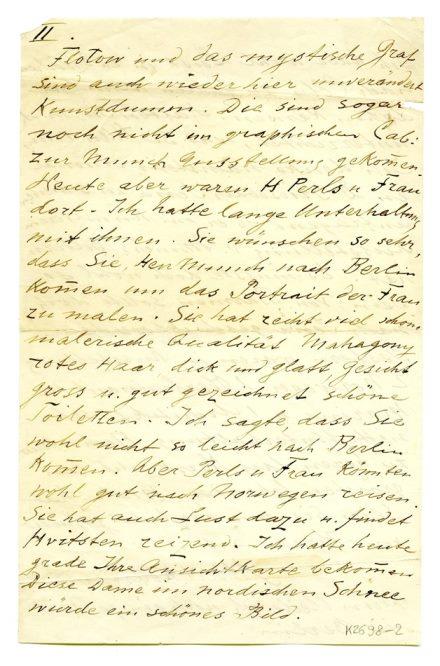 II.
Flotow und das mystische Graf
sind auch wieder hier unverändert
Kunstdumm. Die sind sogar
noch nicht im graphischen Cab:
zur Munch Ausstellung gekom̄en.
Heute aber waren H Perls u Frau
dort. Ich hatte lange Unterhaltung
mit ihnen. Sie wünschen so sehr,
dass Sie, Herr Munch nach Berlin
kom̄en um das Portrait der Frau
zu malen. Sie hat recht viel schon
malerische Qualität Mahagony
rotes Haar dick und glatt, Gesicht
gross u. gut gezeichnet schöne
Toiletten. Ich sagte, dass Sie
wohl nicht so leicht nach Berlin
kom̄en. Aber Perls u Frau könnten
wohl gut nach Norwegen reisen.
Sie hat auch Lust dazu u. findet
Hvitsten reizend. Ich hatte heute
grade Ihre Ansichtkarte bekom̄en
Diese Dame im nordischen Schnee
würde ein schönes Bild.
K2698-2